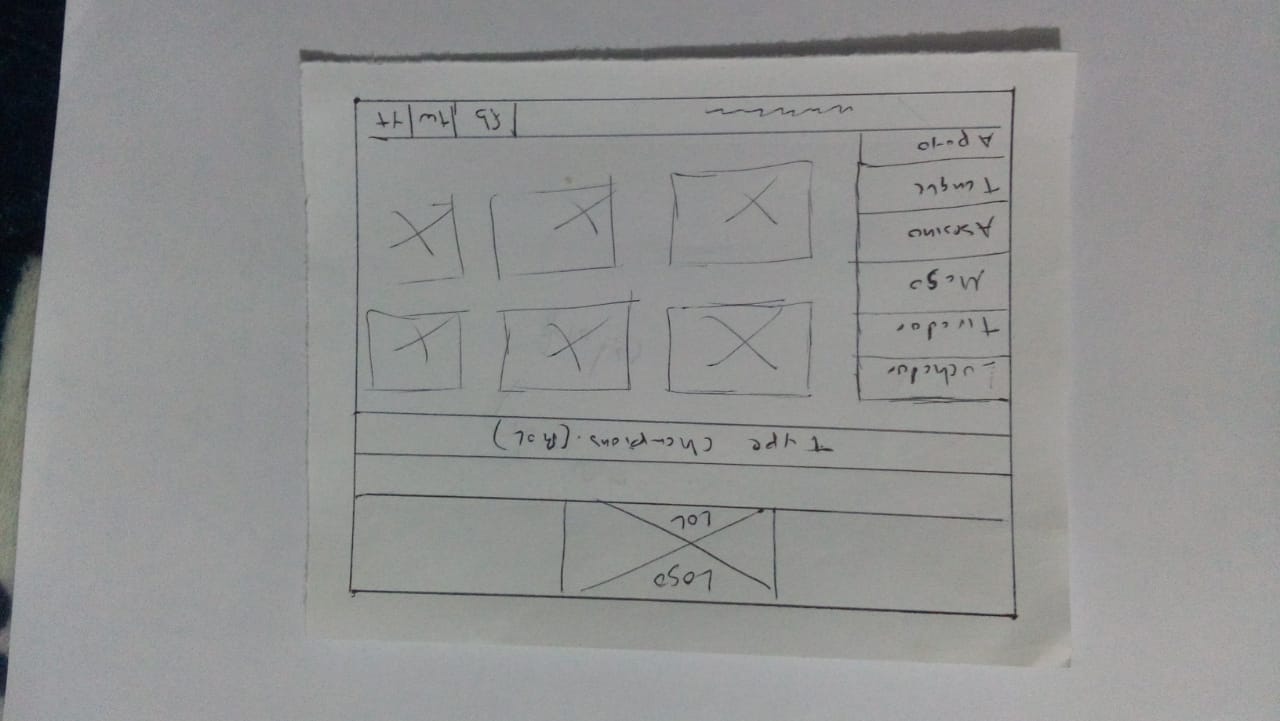 Logo
LOL
Type Champions. (ROL)
Luchador
Tirador
Mago
Asesino
Tanque
Apoyo
fb tw YT